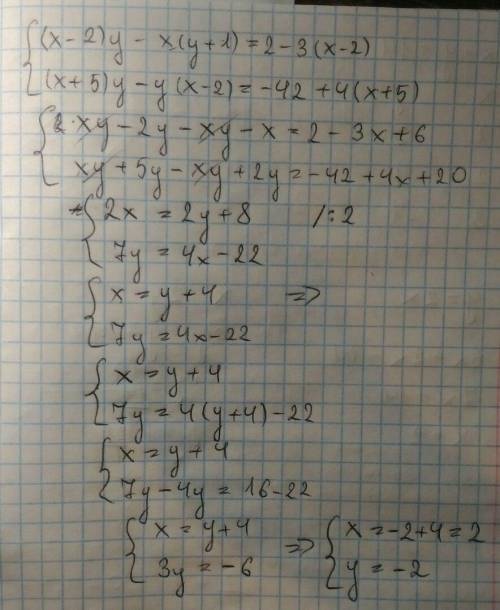 (x-2)y - x(y+1) = 2-3(x-2)
(x+5)y - y(x-2) = -42 + 4(x+5)
xy - 2y - xy - x = 2 - 3x + 6
xy + 5y - xy + 2y = -42 + 4x + 20
2x = 2y + 8 /:2
7y = 4x - 22
x = y + 4 =>
7y = 4x - 22
x = y + 4
7y = 4(y+4) - 22
x = y + 4
7y - 4y = 16 - 22
x = y + 4 => x = -2 + 4 = 2
3y = -6 y = -2